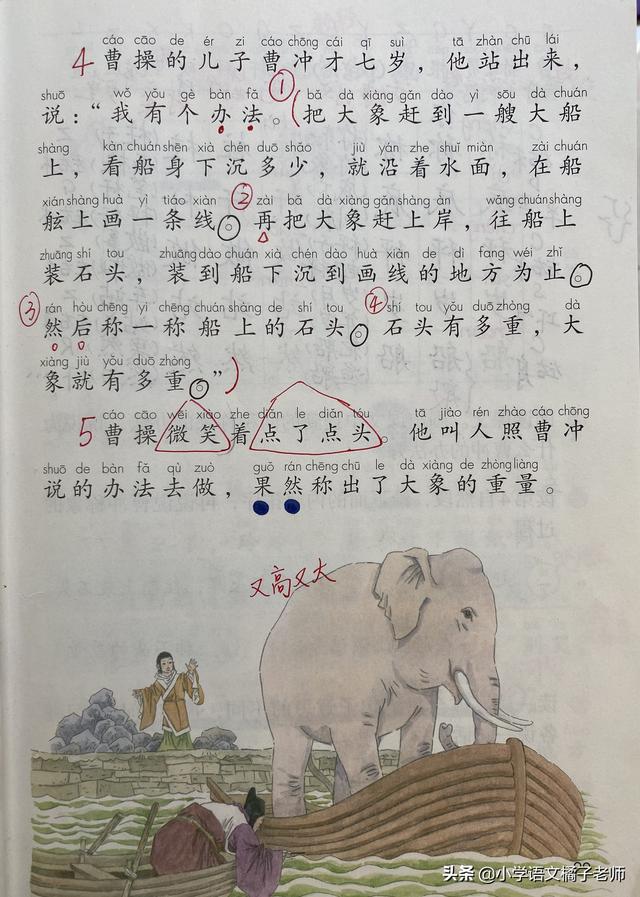 cáo cāo de ér zi cáo chōng cái qī suì tā zhàn chū lái
4 曹操的儿子曹冲才七岁，他站出来，
shuō wǒ yǒu gè bàn fǎ ① bǎ dà xiàng gǎn dào yì sōu dà chuán
说：“我有个办法。（把大象赶到一艘大船
shàng kàn chuán shēn xià chén duō shǎo jiù yán zhe shuǐ miàn zài chuán
上，看船身下沉多少，就沿着水面，在船
xián shàng huà yì tiáo xiàn ② zài bǎ dà xiàng gǎn shàng àn wǎng chuán shàng
舷上画一条线。再把大象赶上岸，往船上
zhuāng shí tou zhuāng dào chuán xià chén dào huà xiàn de dì fang wéi zhǐ
装石头，装到船下沉到画线的地方为止。
③ rán hòu chēng yi chēng chuán shàng de shí tou ④ shí tou yǒu duō zhòng dà
然后称一称船上的石头。石头有多重，大
xiàng jiù yǒu duō zhòng
象就有多重。”）
cáo cāo wēi xiào zhe diǎn le diǎn tóu tā jiào rén zhào cáo chōng
5 曹操微笑着点了点头。他叫人照曹冲
shuō de bàn fǎ qù zuò guǒ rán chēng chū le dà xiàng de zhòng liàng
说的办法去做，果然称出了大象的重量。
又高又大
头条 @小学语文橘子老师